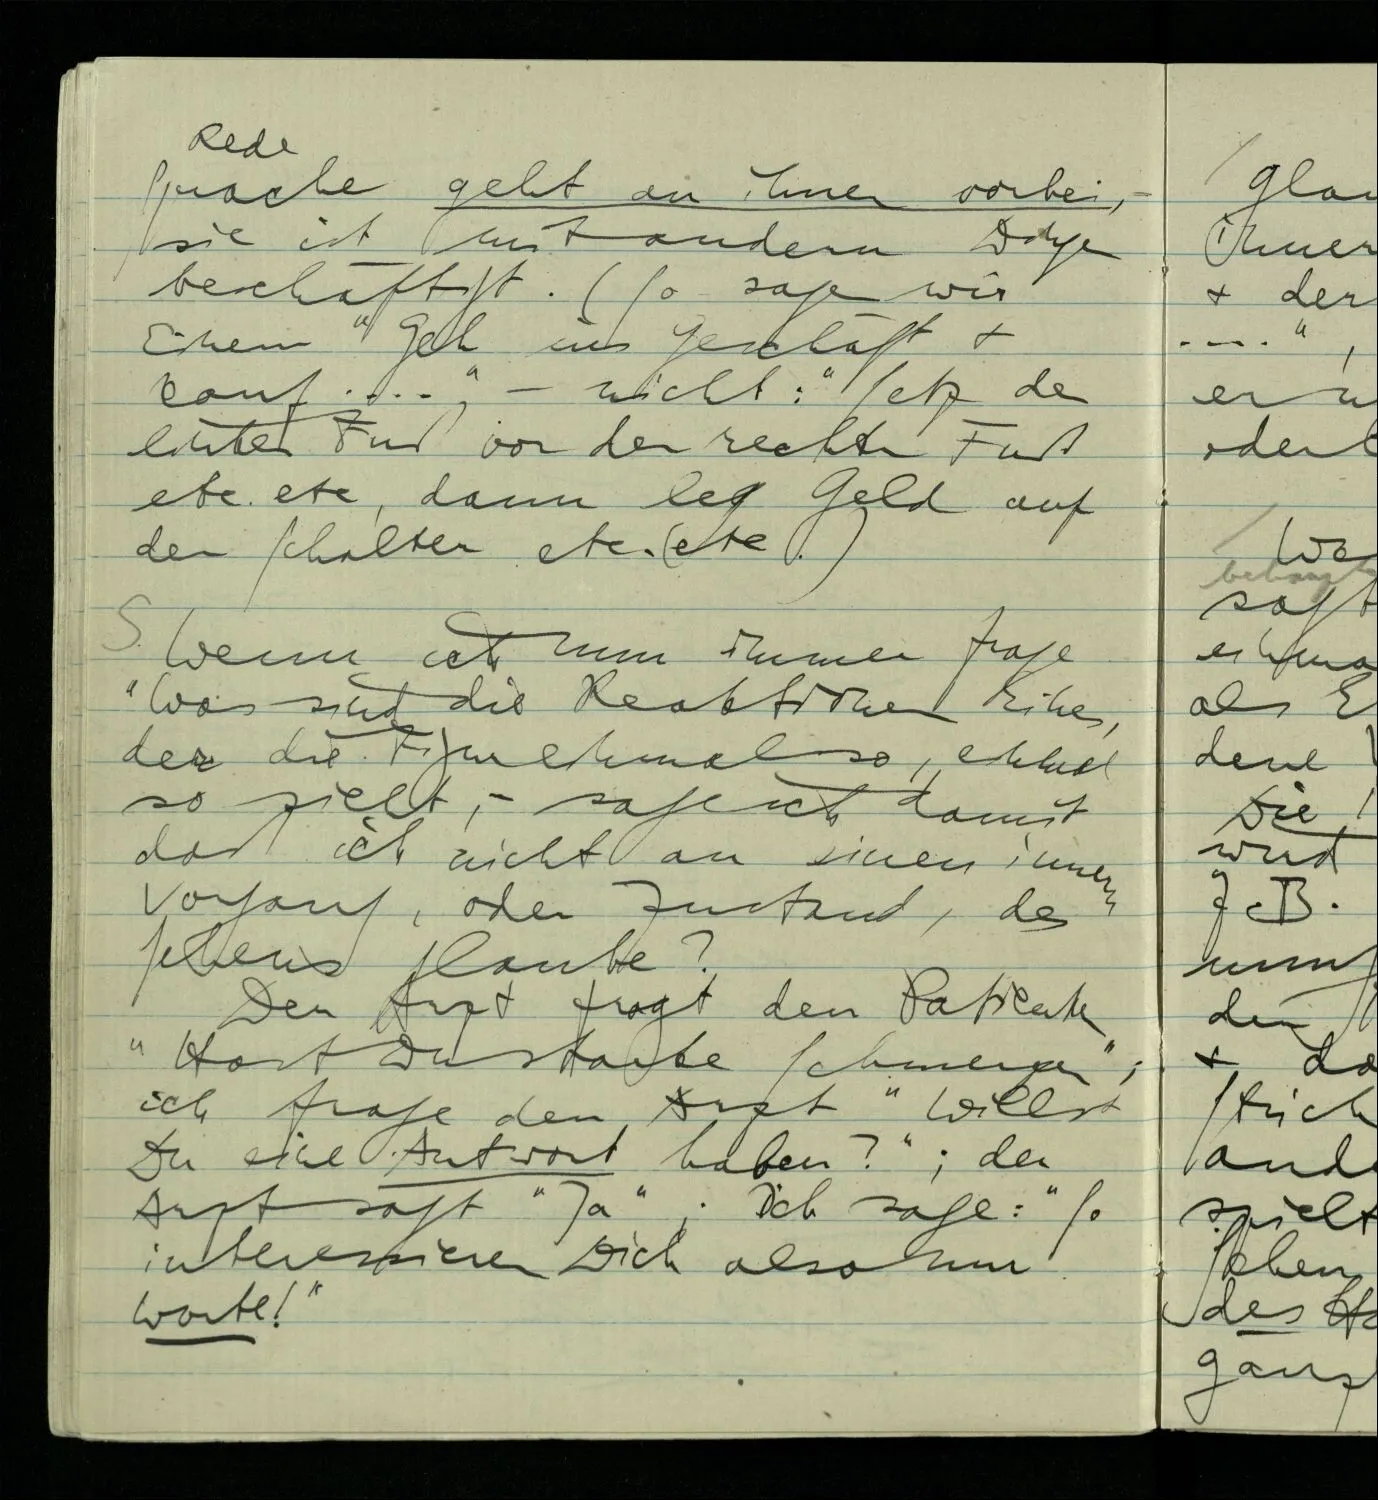 Rede
Sprache geht an ihnen vorbei,–
sie ist mit andern Dinge
beschäftigt. (So sage wir
Einem "Geh ins Geschäft +
kauf ....", – nicht: "Setz de
linken Fuß vor den rechten Fuß
etc. etc, dann leg Geld auf
den Schalter etc. (etc.)
S. Wenn ich nun immer frage
"Was sind die Reaktionen Eines,
der die Figur einmal so, einmal
so sieht, – sage ich damit
daß ich nicht an einen innern
Vorgang, oder Zustand, des
Sehens glaube?
Der Arzt fragt den Patienten
"Hast Du starke Schmerzen";
ich frage den Arzt "Willst
Du eine Antwort haben?"; der
Arzt sagt "Ja"; Ich sage: "So
interessieren Dich also nur
Worte!"
+ der
...."
We
Die
wird
z.B.
+
des
ganz